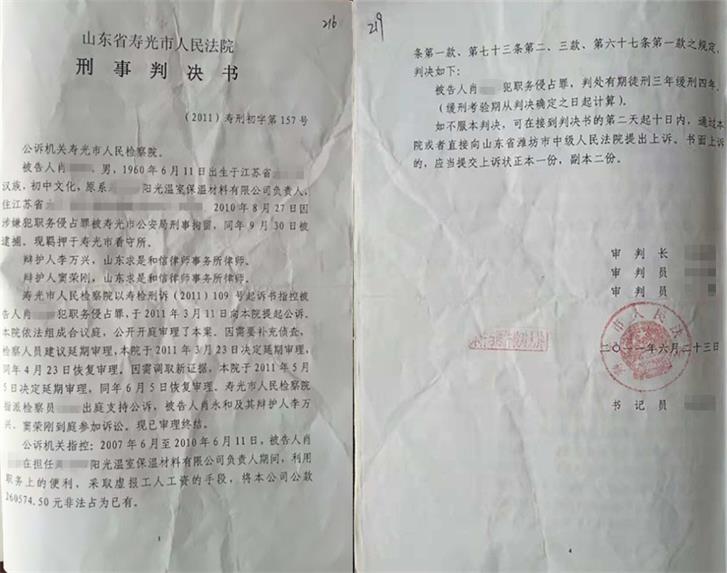 216
山东省寿光市人民法院
刑事判决书
（2011）寿刑初字第157号
公诉机关寿光市人民检察院。
被告人肖 ，男，1960年6月11日出生于江苏省
汉族，初中文化，原系 阳光温室保温材料有限公司负责人，
住江苏省 2010年8月27日因
涉嫌犯职务侵占罪被寿光市公安局刑事拘留，同年9月30日被
逮捕。现羁押于寿光市看守所。
辩护人李万兴，山东求是和信律师事务所律师。
辩护人窦荣刚，山东求是和信律师事务所律师。
寿光市人民检察院以寿检刑诉（2011）109号起诉书指控被
告人肖 犯职务侵占罪，于2011年3月11日向本院提起公诉。
本院依法组成合议庭，公开开庭审理了本案。因需要补充侦查，
检察人员建议延期审理，本院于2011年3月23日决定延期审理，
同年4月23日恢复审理。因需调取新证据，本院于2011年5月
5日决定延期审理，同年6月5日恢复审理。寿光市人民检察院
指派检察员 出庭支持公诉，被告人肖永和及其辩护人李万
兴、窦荣刚到庭参加诉讼。现已审理终结。
公诉机关指控：2007年6月至2010年6月11日，被告人肖
在担任 阳光温室保温材料有限公司负责人期间，利用
职务上的便利，采取虚报工人工资的手段，将本公司公款
260574.50元非法占为已有。
1
219
条第一款、第七十三条第二、三款、第六十七条第一款之规定，
判决如下：
被告人肖 犯职务侵占罪，判处有期徒刑三年缓刑四年。
（缓刑考验期从判决确定之日起计算）。
如不服本判决，可在接到判决书的第二天起十日内，通过本
院或者直接向山东省潍坊市中级人民法院提出上诉。书面上诉
的，应当提交上诉状正本一份，副本二份。
审判长
审判员
审判员
二〇一一年六月二十三日
书记员
4